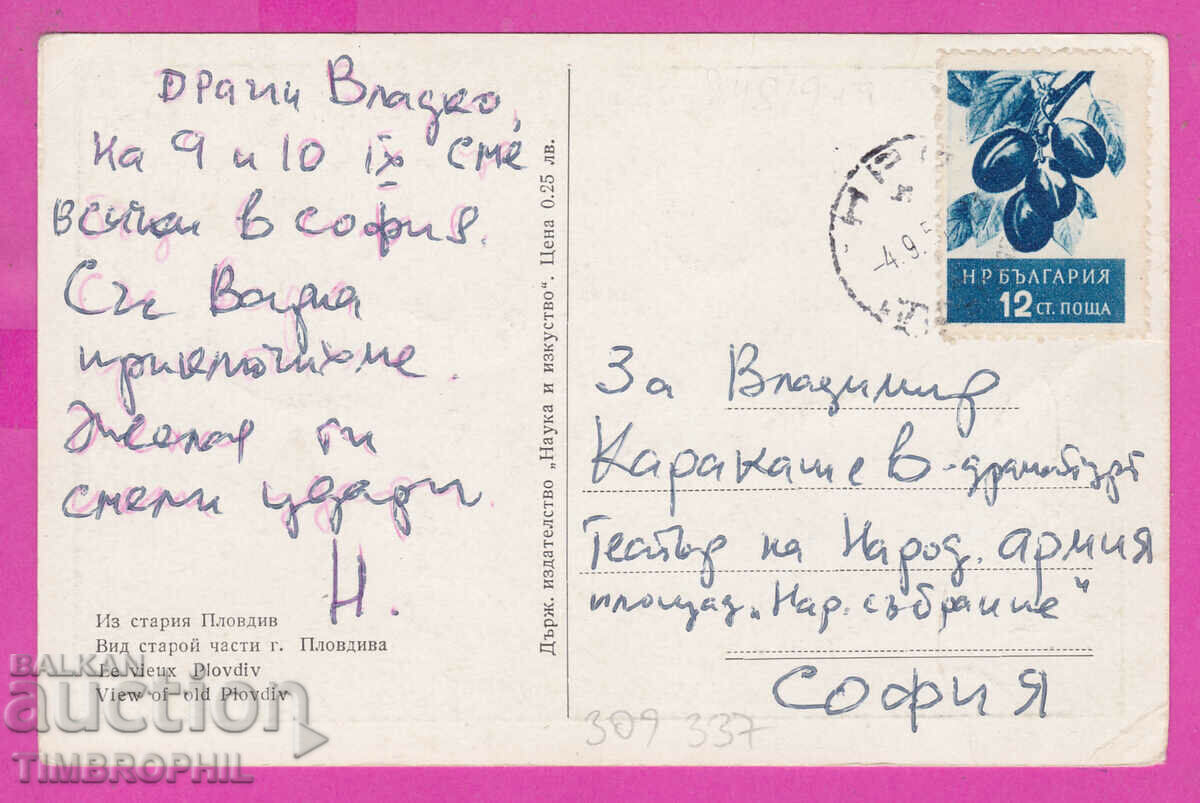 драги Владко,
на 9 и 10 IX сме
всички в София.
Със
приключихме.
Желая ти
смели удари
Н.
Из стария Пловдив
Вид старой части г. Пловдива
Le vieux Plovdiv
View of old Plovdiv
Държ. издателство „Наука и изкуство“. Цена 0.25 лв.
-4.9.5
НР БЪЛГАРИЯ
12 СТ. ПОЩА
За Владимир
Каракашев - драматург
Театър на Народ. армия
площад „Нар. събрание“
София
309 337
BALKAN
auction
TIMBROPHIL